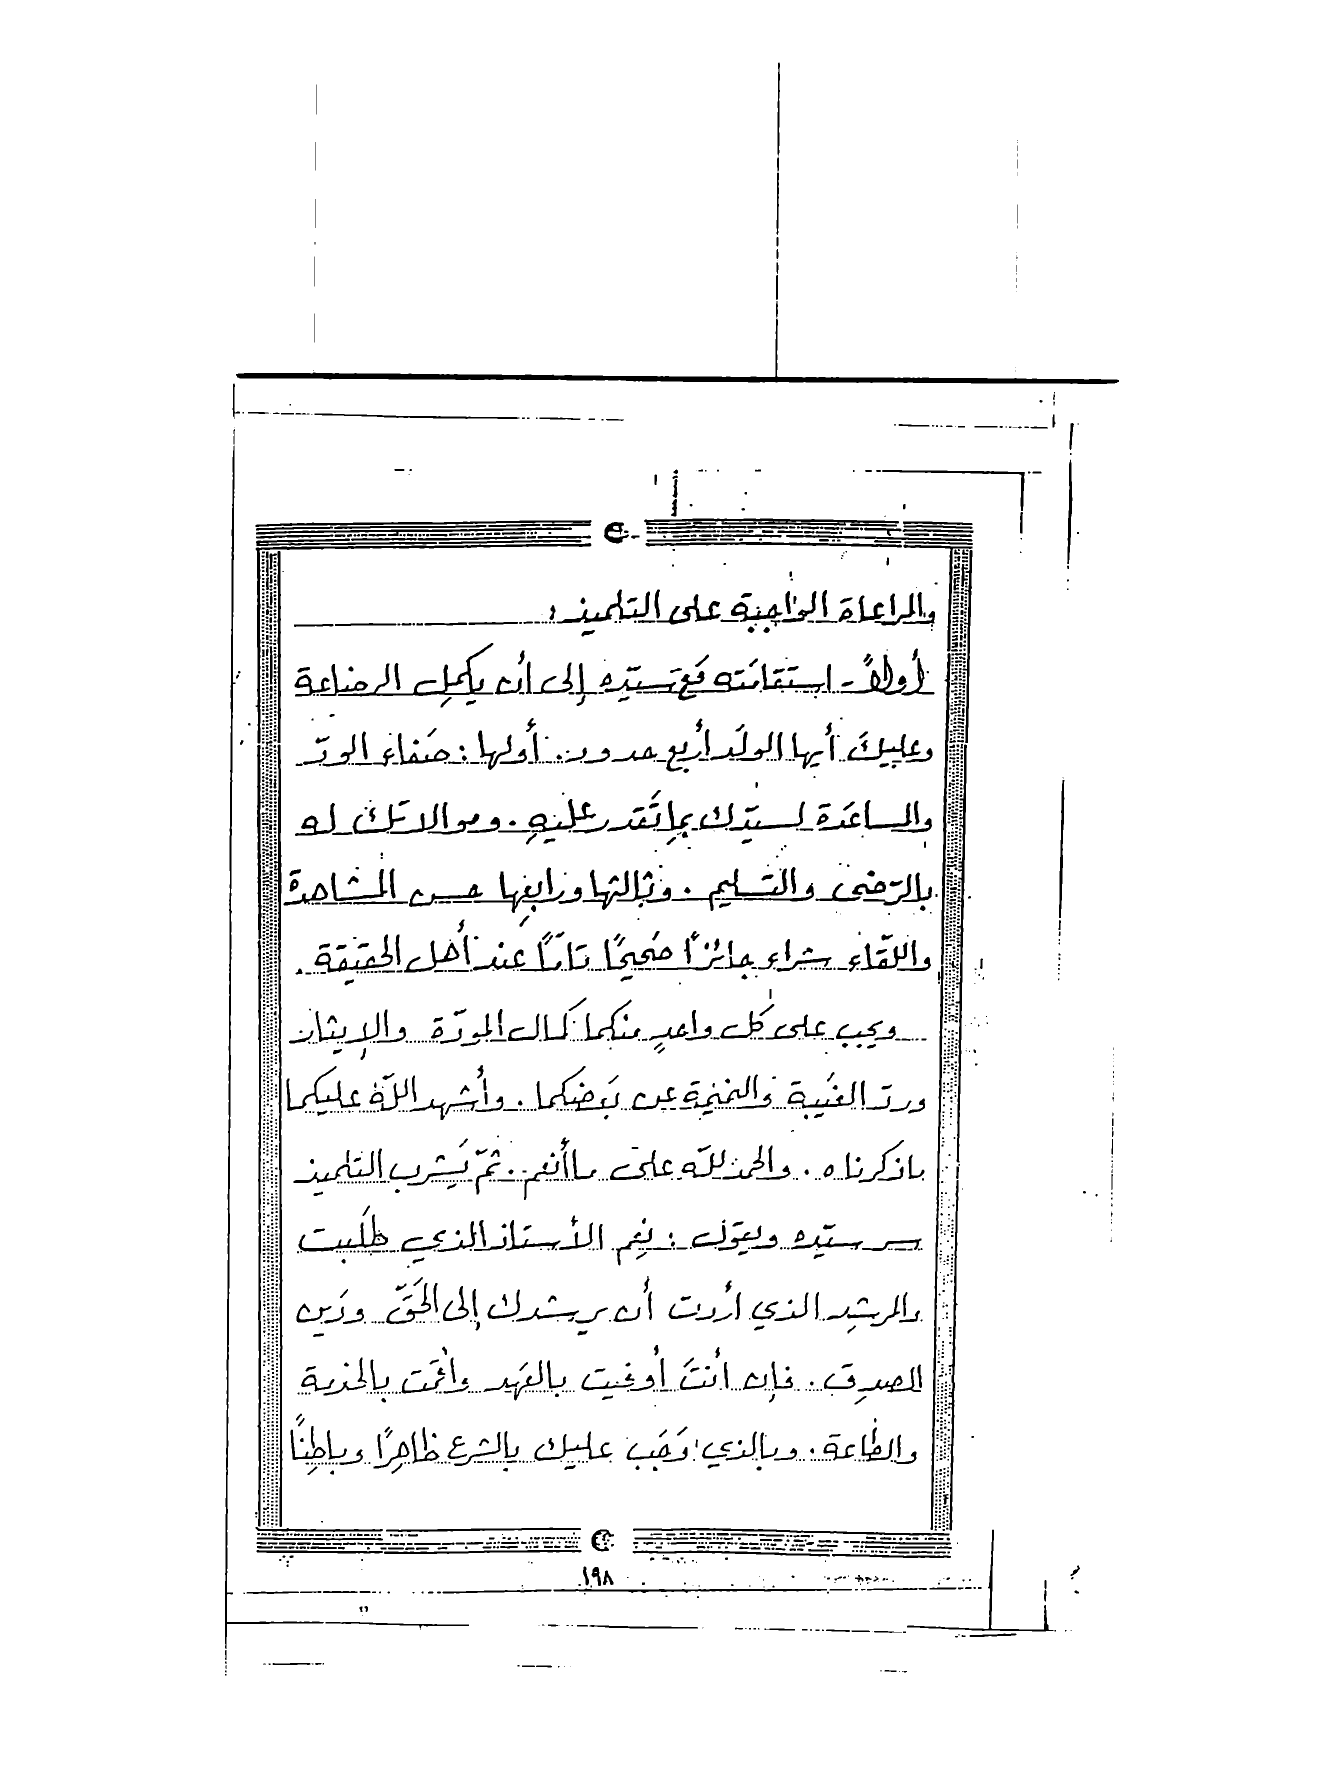 والمراعاة الواجبة على التلميذ :
أولاً - استقامته مع سيّده إلى أن يكمل الرضاعة
وعليكَ أيها الولَد أربع حدود . أولها : صَفاء الودّ
والمساعَدة لسيّدك بما تَقدر عليهِ . وموالاتك له
بالرّضى والتسليم . وثالثها ورابعها حسن المشاهدة
واللّقاء شراء جائزاً صَحيحًا تامًا عند أهل الحقيقة .
ويجب على كل واحدٍ منكما كمال المودّة والإيثار
وردّ الغَيبة والنميمة عن بَعضكما . وأشهد اللّه عليكما
بما ذكرناه . والحمد للّه على ما أنعم . ثمّ يَشرب التلميذ
سر سيّده ويقول : نِعم الأستاذ الذي طلَبت
والمرشِد الذي أردت أن يرشدك إلى الحَقّ ودَين
الصدق . فإن أنتَ أوفيت بالعَهد وأقمت بالخدمة
والطاعة . وبالذي وَجَب عليك بالشرع ظاهِرًا وباطِنًا
١٩٨